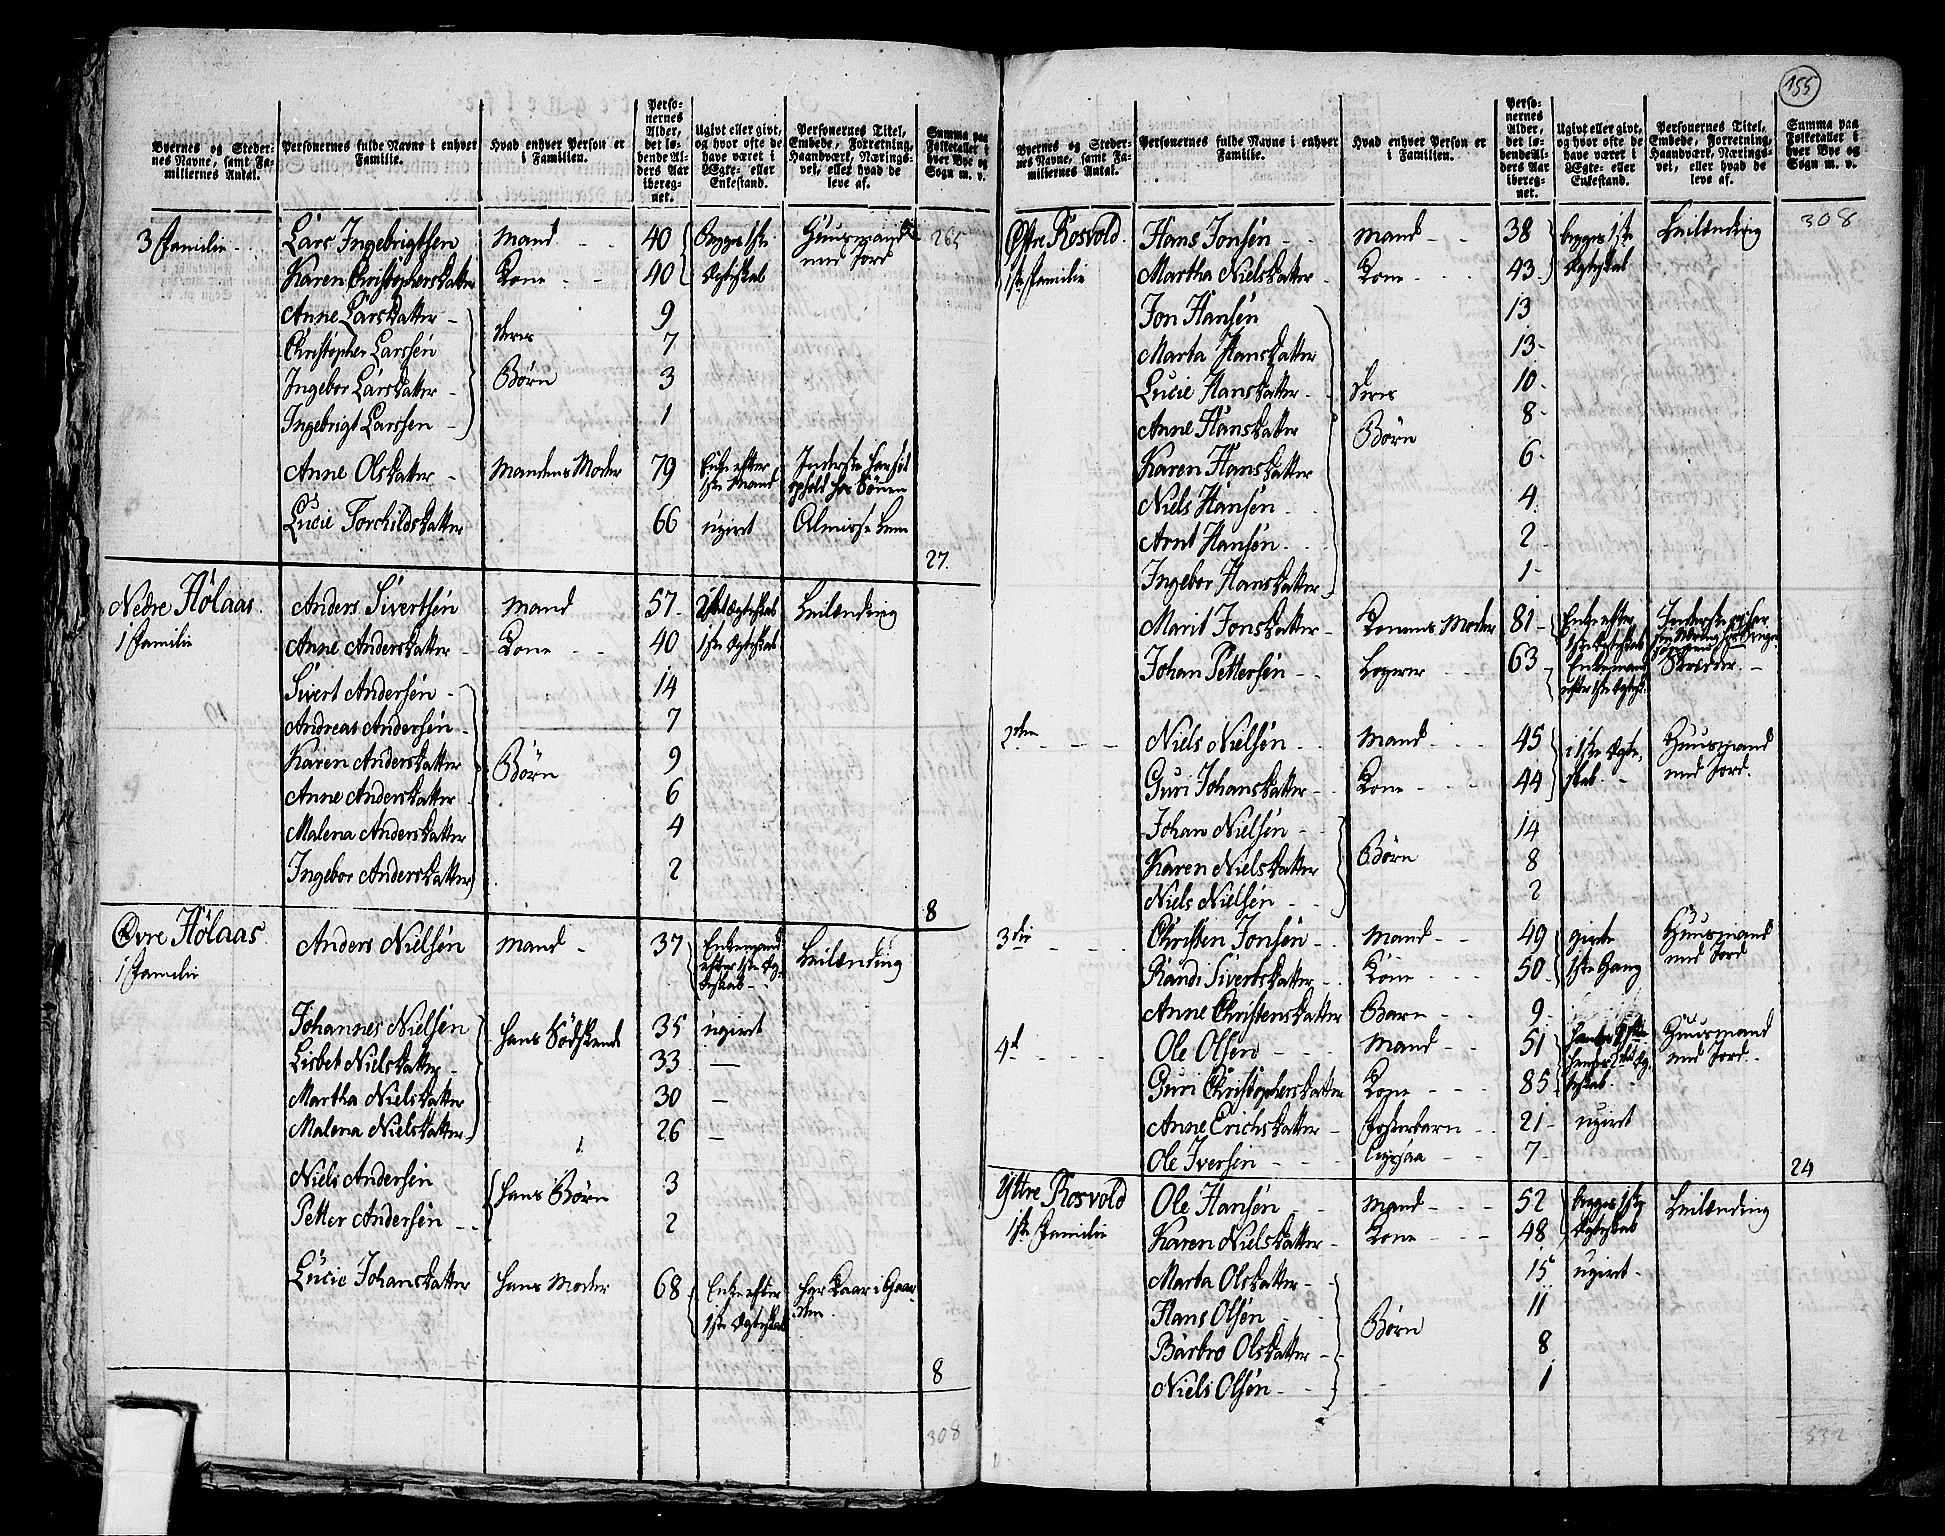 155
Byernes og Stedernes Navne, samt Familiernes Antal. Personernes fulde Navne i enhver Familie. Hvad enhver Person er i Familien. Personernes Alder, det løbende Alders Aar iberegnet. Ugivt eller givt, og hvor ofte de have været i Ægte- eller Enkestand. Personernes Titel, Embede, Forretning, Haandværk, Næringsvei, eller hvad de leve af. Summa paa Folketallet i hver Bye og Sogn m. v.
3 Familie Lars Ingebrigtsen Mand 40 Begge 1ste Huusmand 265
Karen Christophersdatter Kone 40 Egteskab med Jord
Anne Larsdatter 9
Christopher Larssen deres 7
Ingebor Larsdatter Børn 3
Ingebrigt Larssen 1
Anne Olsdatter Mandens Moder 79 Enke efter 1ste Mand Inderste har sit ophold hos Sönen
Lucie Torchildsdatter 66 ugivt Almisse Lem
27.
Nedre Hölaas. Anders Sivertsen Mand 57 2det Egteskab Leilænding
1 Familie Anne Andersdatter Kone 40 1ste Egteskab
Sivert Andersen 14
Andreas Andersen 7
Karen Andersdatter Børn 9
Anne Andersdatter 6
Malena Andersdatter 4
Ingebor Andersdatter 2
8
Øvre Hölaas. Anders Nielsen Mand 37 Enkemand efter 1ste Egteskab Leilænding
1 Familie
Johannes Nielsen Hans Södskende 35 ugivt
Lisbet Nielsdatter 33 —
Martha Nielsdatter 30 —
Malena Nielsdatter 26 —
Niels Andersen Hans Børn 3
Petter Andersen 2
Lucie Johansdatter Hans Moder 68 Enke efter 1ste Egteskab har Kaar i Gaarden.
8
308
Byernes og Stedernes Navne, samt Familiernes Antal. Personernes fulde Navne i enhver Familie. Hvad enhver Person er i Familien. Personernes Alder, det løbende Alders Aar iberegnet. Ugivt eller givt, og hvor ofte de have været i Ægte- eller Enkestand. Personernes Titel, Embede, Forretning, Haandværk, Næringsvei, eller hvad de leve af. Summa paa Folketallet i hver Bye og Sogn m. v.
Östre Rosvold. Hans Jonsen Mand 38 begge 1ste Leilænding 308
1ste Familie Martha Nielsdatter Kone 43 Egteskab
Jon Hansen 13
Marta Hansdatter 13
Lucie Hansdatter deres 10
Anne Hansdatter Børn 8
Karen Hansdatter 6
Niels Hansen 4
Arnt Hansen 2
Ingebor Hansdatter 1
Marit Jonsdatter Konens Moder 81 Enke efter 1ste Egteskab Inderste
Johan Pettersen Logerer 63 Enkemand efter 1ste Egtesk. Skredder.
2den Niels Nielsen Mand 45 i 1ste Egteskab. Huusmand
Guri Johansdatter Kone 44 med Jord.
Johan Nielsen 14
Karen Nielsdatter Børn 8
Niels Nielsen 2
3die Christen Jonsen Mand 49 givte Huusmand
Randi Sivertsdatter Kone 50 1ste Gang med Jord
Anne Christensdatter Barn 9
4d Ole Olsen Mand 51 Huusmand
Guri Christophersdatter Kone 85 med Jord.
Anne Erichsdatter Fosterbarn 21 ugivt
Ole Iversen Ligesaa 7
24
Yttre Rosvold Ole Hansen Mand 52 begge 1ste Leilænding
1ste Familie Karen Nielsdatter Kone 48 Egteskab
Marta Olsdatter 15 ugivt
Hans Olsen 11
Barbro Olsdatter Børn 8
Niels Olsen 1
332